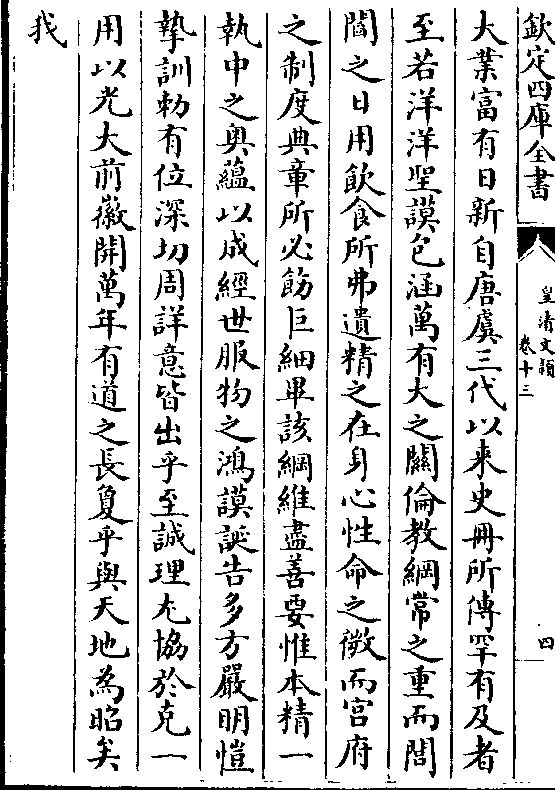 欽定四庫全書
皇清文頴
卷十三
四
大業富有日新自唐虞三代以来史冊所傳罕有及者
至若洋洋聖謨包涵萬有大之關倫教綱常之重而閭
閻之日用飲食所弗遺精之在身心性命之微而宫府
之制度典章所必飭巨細畢該綱維盡善要惟本精一
執中之奥蘊以成經世服物之鴻謨誕告多方嚴明愷
摯訓勅有位深切周詳意皆出乎至誠理尤協於克一
用以光大前徽開萬年有道之長敻乎與天地為昭矣
我